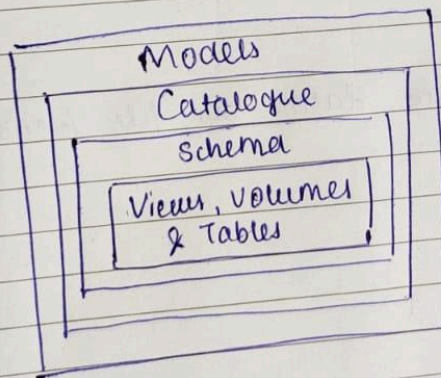 Models
Catalogue
Schema
Views, Volumes
& Tables